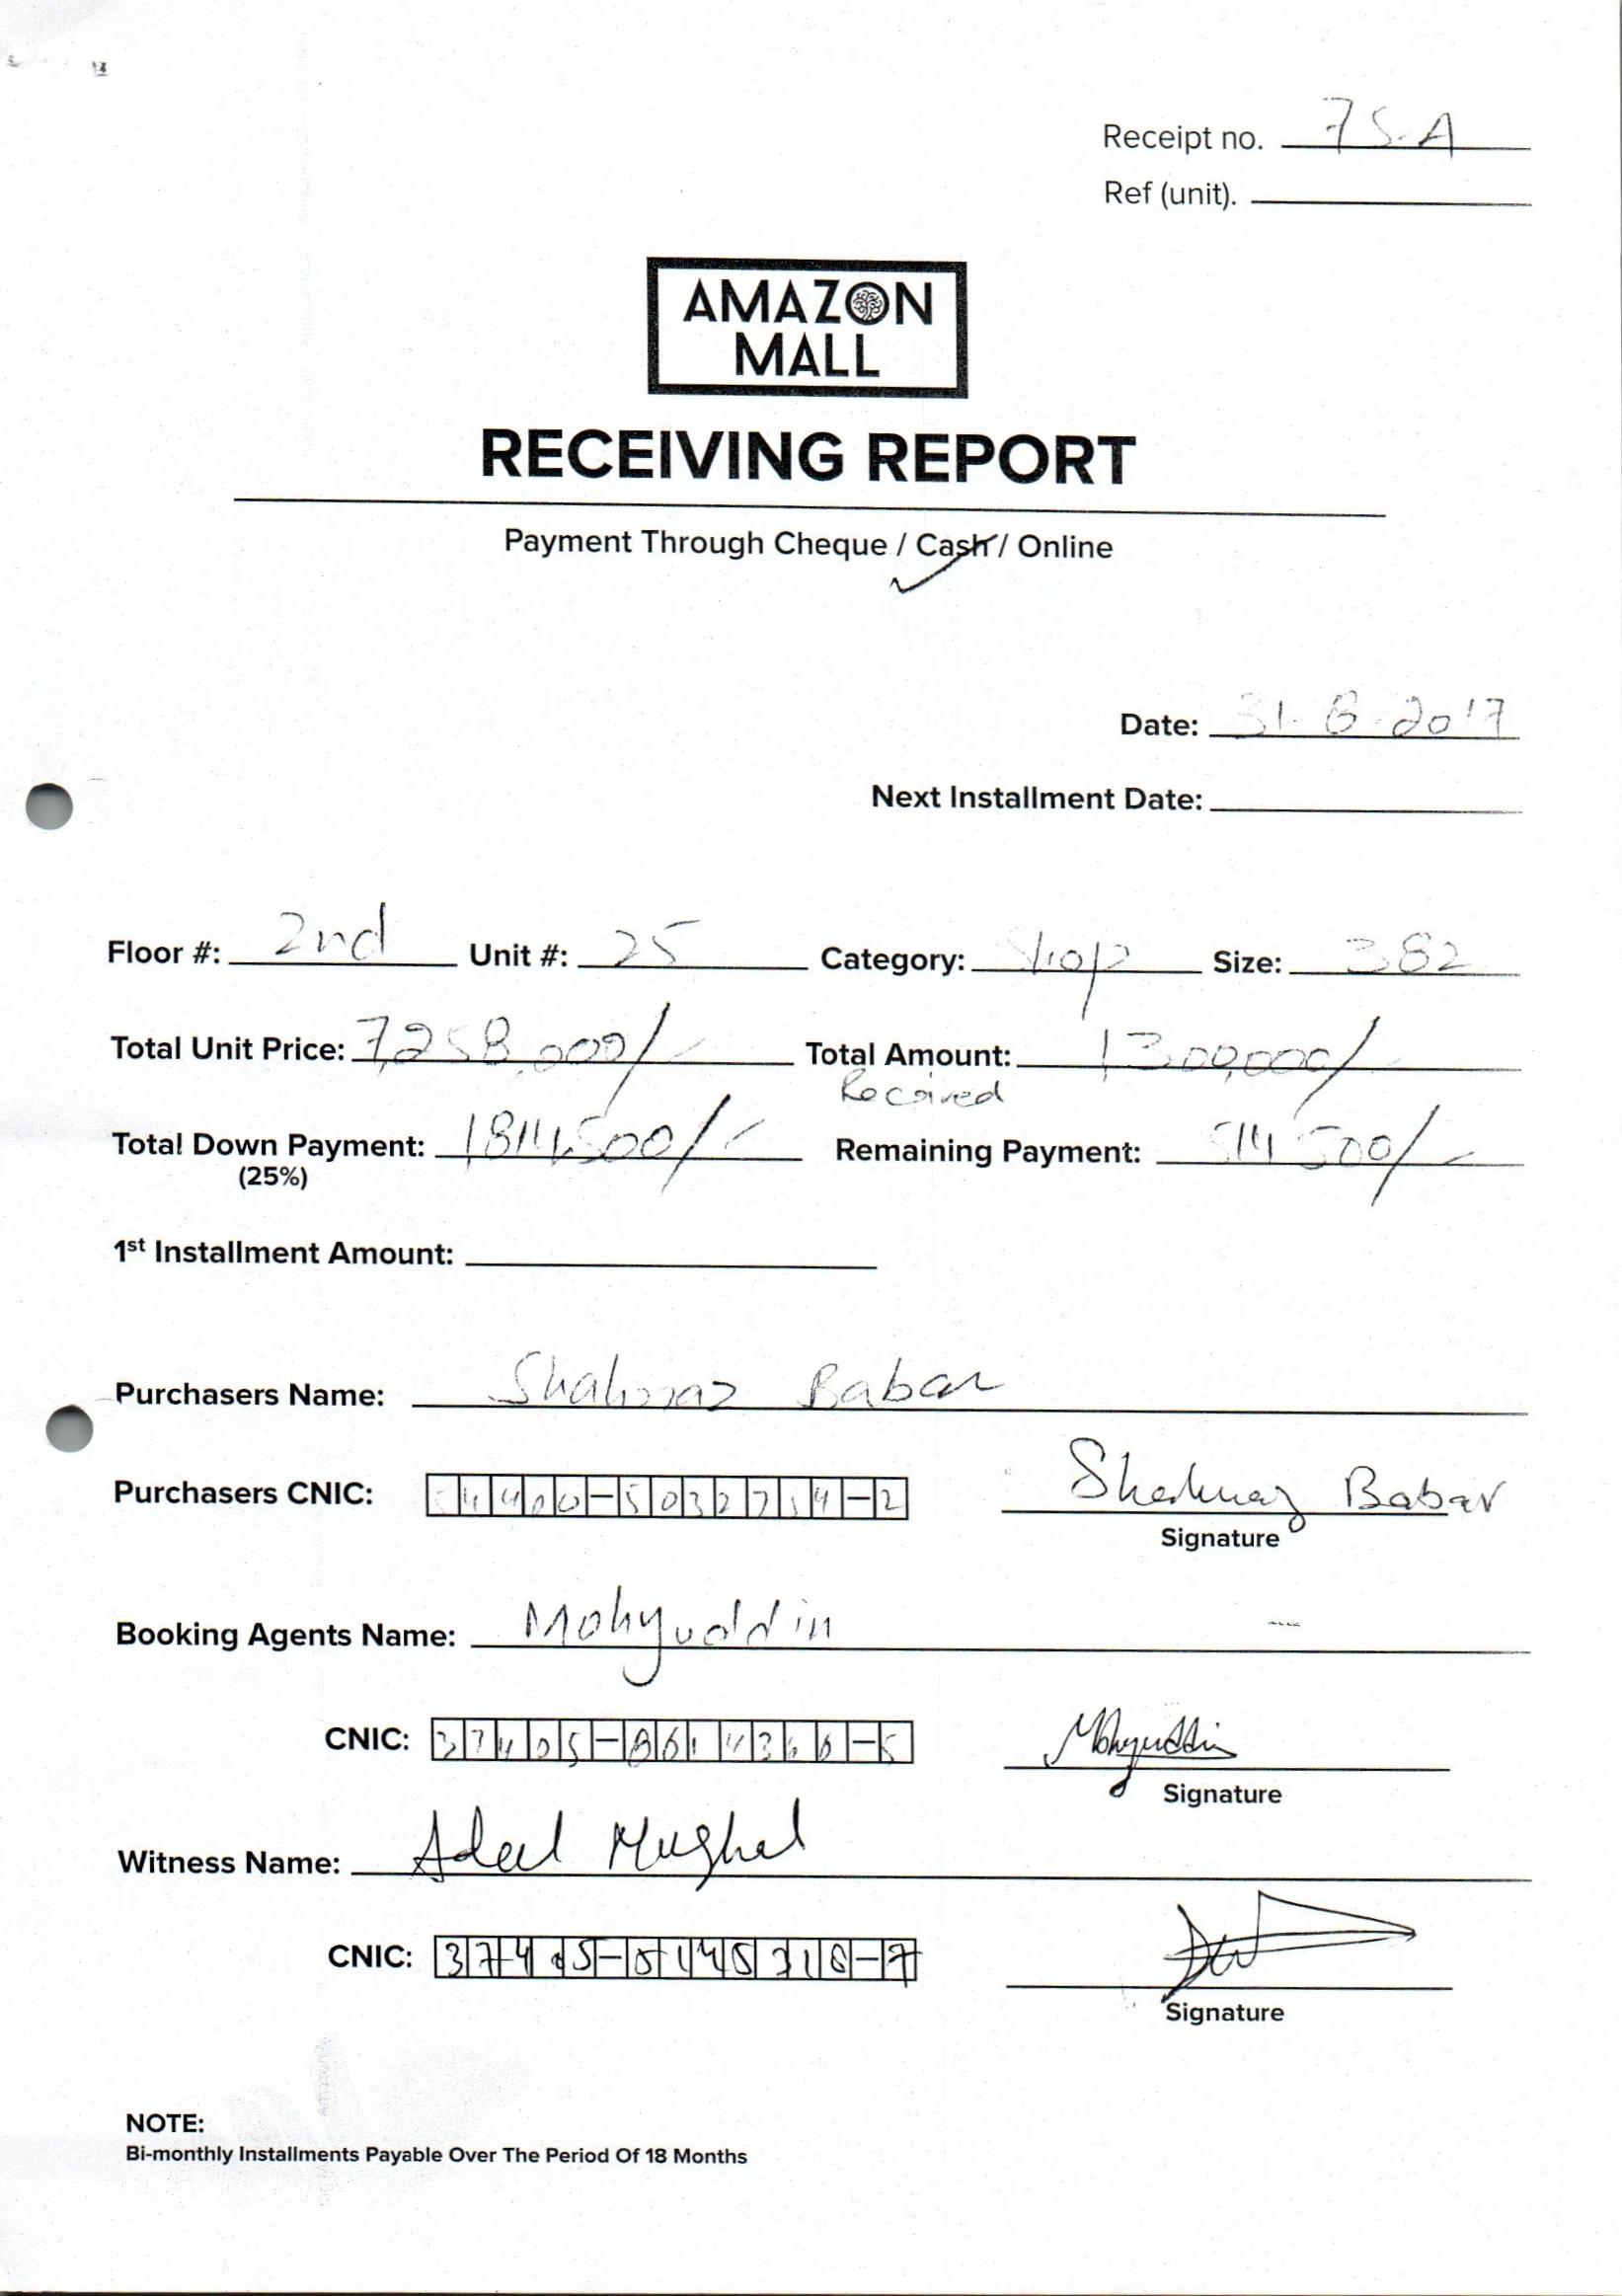 Receipt no. 75-A
Ref (unit).
AMAZON
MALL
RECEIVING REPORT
Payment Through Cheque / Cash / Online
Date: 31-8-2017
Next Installment Date:
Floor #: 2nd Unit #: 25 Category: Shop Size: 382
Total Unit Price: 7,258,000/- Total Amount: 1300,000/-
Received
Total Down Payment: 1814,500/- Remaining Payment: 514 500/-
(25%)
1st Installment Amount:
Purchasers Name: Shahnaz Babar
Purchasers CNIC: Shahnaz Babar
Signature
Booking Agents Name: Mohyuddin
CNIC: Mohyuddin
Signature
Witness Name: Adeel Mughal
CNIC:
Signature
NOTE:
Bi-monthly Installments Payable Over The Period Of 18 Months